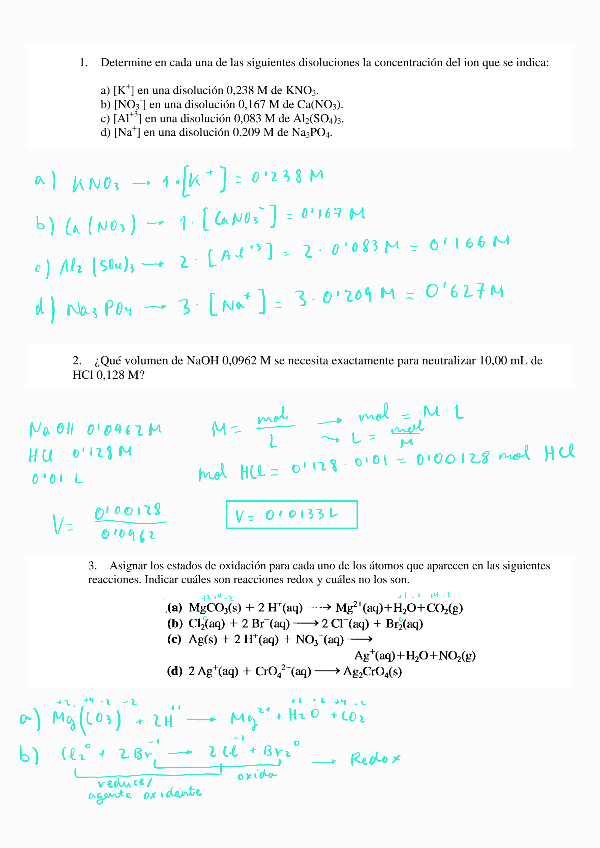 1. Determine en cada una de las siguientes disoluciones la concentración del ion que se indica:
a) [K⁺] en una disolución 0,238 M de KNO₃.
b) [NO₃⁻] en una disolución 0,167 M de Ca(NO₃).
c) [Al⁺³] en una disolución 0,083 M de Al₂(SO₄)₃.
d) [Na⁺] en una disolución 0,209 M de Na₃PO₄.
a) KNO₃ → 1·[K⁺] = 0'238 M
b) Ca(NO₃) → 1·[CaNO₃⁻] = 0'167 M
c) Al₂(SO₄)₃ → 2·[Al⁺³] = 2·0'083 M = 0'166 M
d) Na₃PO₄ → 3·[Na⁺] = 3·0'209 M = 0'627 M
2. ¿Qué volumen de NaOH 0,0962 M se necesita exactamente para neutralizar 10,00 mL de
HCl 0,128 M?
NaOH 0'0962 M M = mol/L → mol = M·L
HCl 0'128 M → L = mol/M
0'01 L mol HCl = 0'128·0'01 = 0'00128 mol HCl
V = 0'00128/0'0962 V = 0'0133 L
3. Asignar los estados de oxidación para cada uno de los átomos que aparecen en las siguientes
reacciones. Indicar cuáles son reacciones redox y cuáles no los son.
+2 +4 -2 +1 -2 +4 -2
(a) MgCO₃(s) + 2 H⁺(aq) → Mg²⁺(aq)+H₂O+CO₂(g)
(b) Cl₂(aq) + 2 Br⁻(aq) → 2 Cl⁻(aq) + Br₂(aq)
(c) Ag(s) + 2 H⁺(aq) + NO₃⁻(aq) →
Ag⁺(aq)+H₂O+NO₂(g)
(d) 2 Ag⁺(aq) + CrO₄²⁻(aq) → Ag₂CrO₄(s)
+2 +4 -2 -2 +1 +1 -2 +4 -2
a) Mg(CO₃) + 2H → Mg²⁺ + H₂O + CO₂
b) Cl₂⁰ + 2Br⁻¹ → 2Cl⁻¹ + Br₂⁰ → Redox
reduce/ oxida
agente oxidante